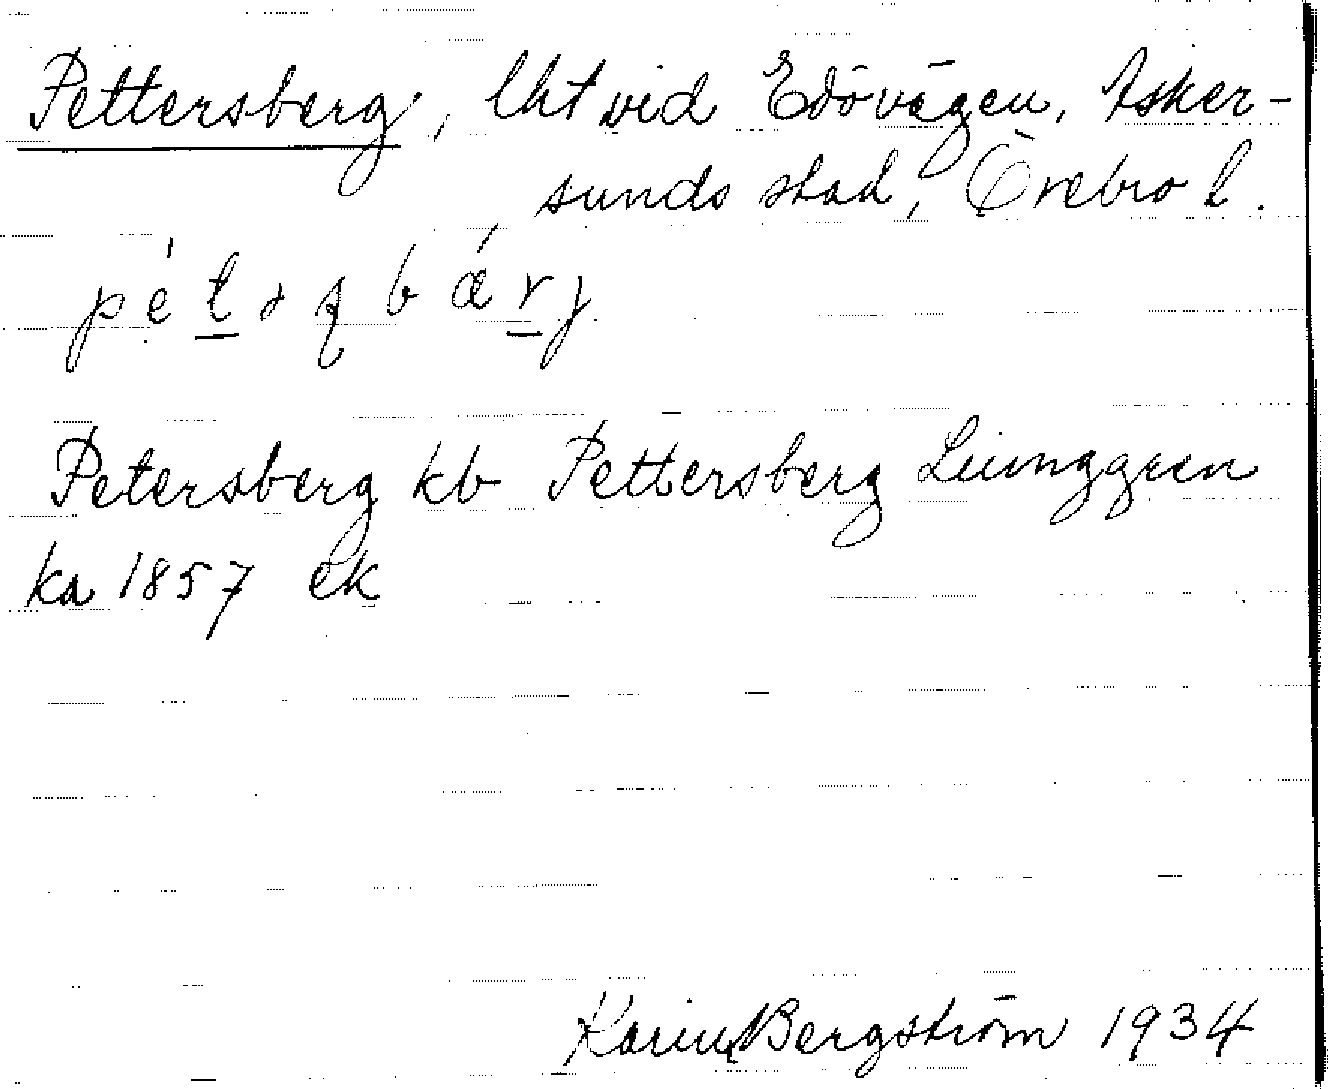 Pettersberg, lht vid Edövägen, Asker-
sunds stad, Örebro l.
pétəʂbǽrj
Petersberg kb Pettersberg Ljunggren
ka 1857 ek
Karin Bergström 1934